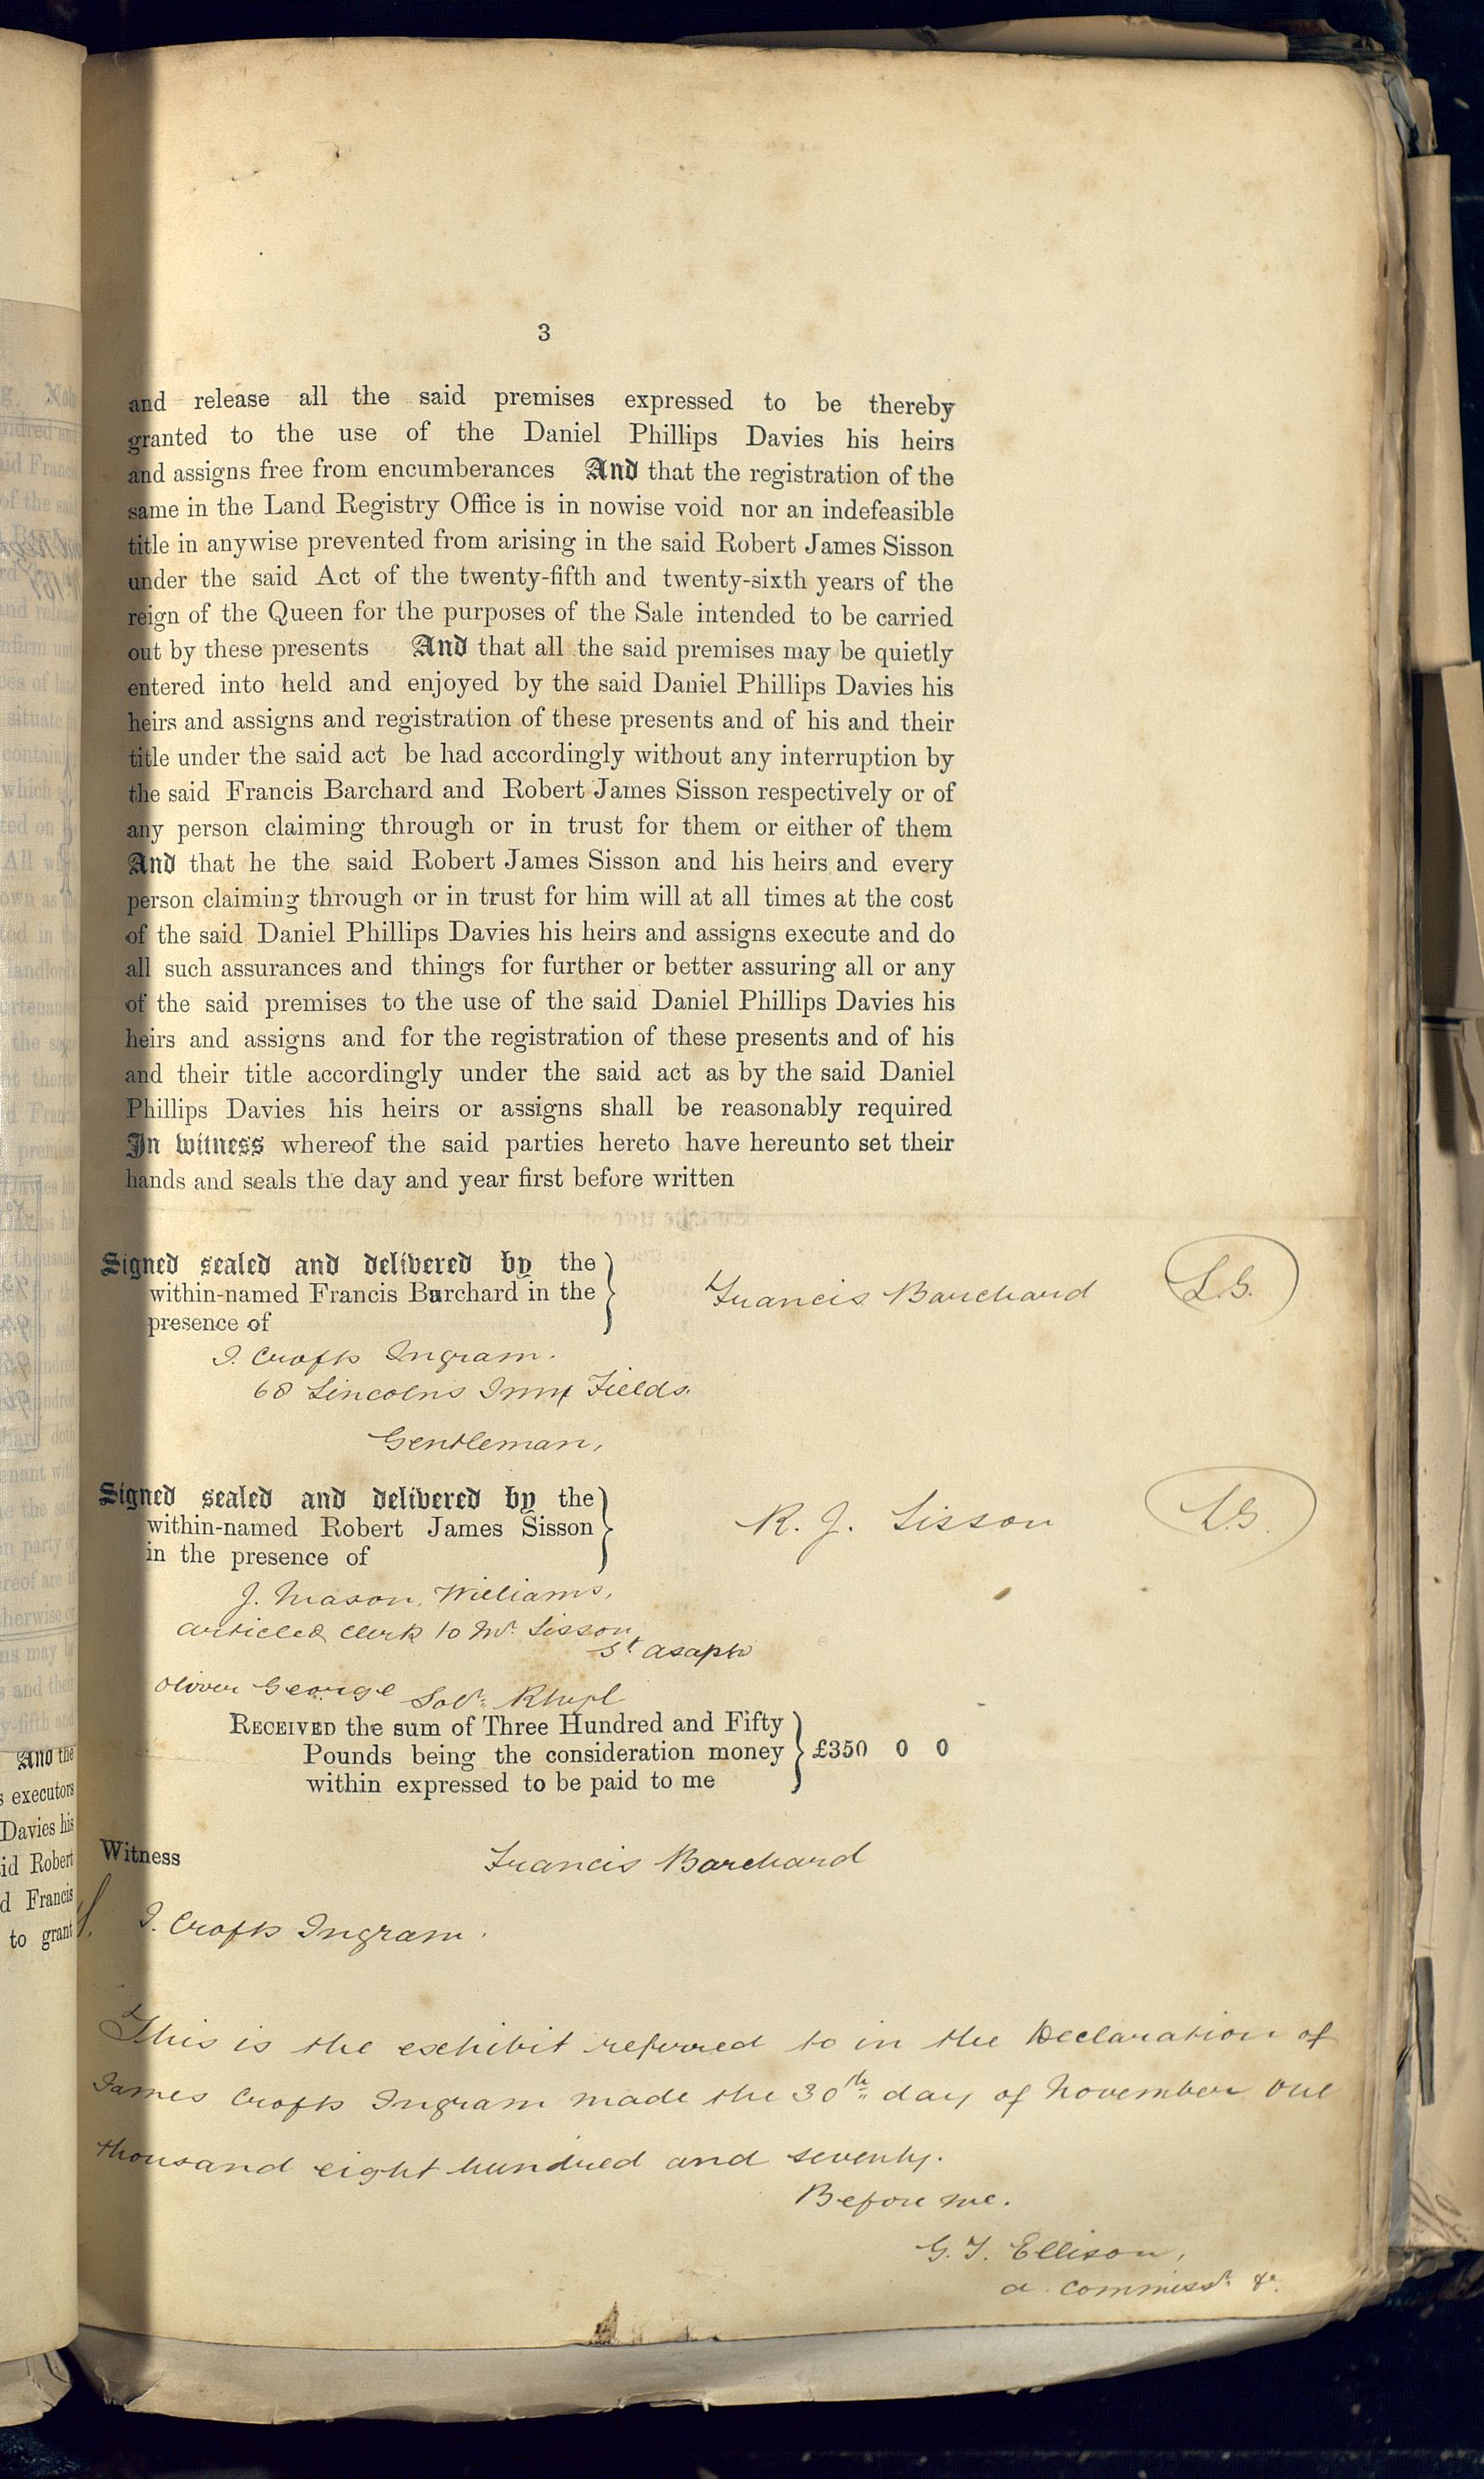 3
and release all the said premises expressed to be thereby
granted to the use of the Daniel Phillips Davies his heirs
and assigns free from encumberances And that the registration of the
same in the Land Registry Office is in nowise void nor an indefeasible
title in anywise prevented from arising in the said Robert James Sisson
under the said Act of the twenty-fifth and twenty-sixth years of the
reign of the Queen for the purposes of the Sale intended to be carried
out by these presents And that all the said premises may be quietly
entered into held and enjoyed by the said Daniel Phillips Davies his
heirs and assigns and registration of these presents and of his and their
title under the said act be had accordingly without any interruption by
the said Francis Barchard and Robert James Sisson respectively or of
any person claiming through or in trust for them or either of them
And that he the said Robert James Sisson and his heirs and every
person claiming through or in trust for him will at all times at the cost
of the said Daniel Phillips Davies his heirs and assigns execute and do
all such assurances and things for further or better assuring all or any
of the said premises to the use of the said Daniel Phillips Davies his
heirs and assigns and for the registration of these presents and of his
and their title accordingly under the said act as by the said Daniel
Phillips Davies his heirs or assigns shall be reasonably required
In witness whereof the said parties hereto have hereunto set their
hands and seals the day and year first before written
Signed sealed and delivered by the
within-named Francis Barchard in the
presence of
Francis Barchard L.S.
J. Crofts Ingram.
68 Lincolns Inn Fields.
Gentleman,
Signed sealed and delivered by the
within-named Robert James Sisson
in the presence of
R. J. Sisson L.S.
J. Mason Williams,
articled clerk to Mr. Sisson
St Asaph
Oliver George Solr. Rhyl
RECEIVED the sum of Three Hundred and Fifty
Pounds being the consideration money £350 0 0
within expressed to be paid to me
Witness Francis Barchard
J. Crofts Ingram.
This is the exhibit referred to in the Declaration of
James Crofts Ingram made the 30th day of November One
thousand eight hundred and seventy.
Before me.
G. T. Ellison,
a Commissr. &c.
And the
executors
Davies his
id Robert
d Francis
to grant